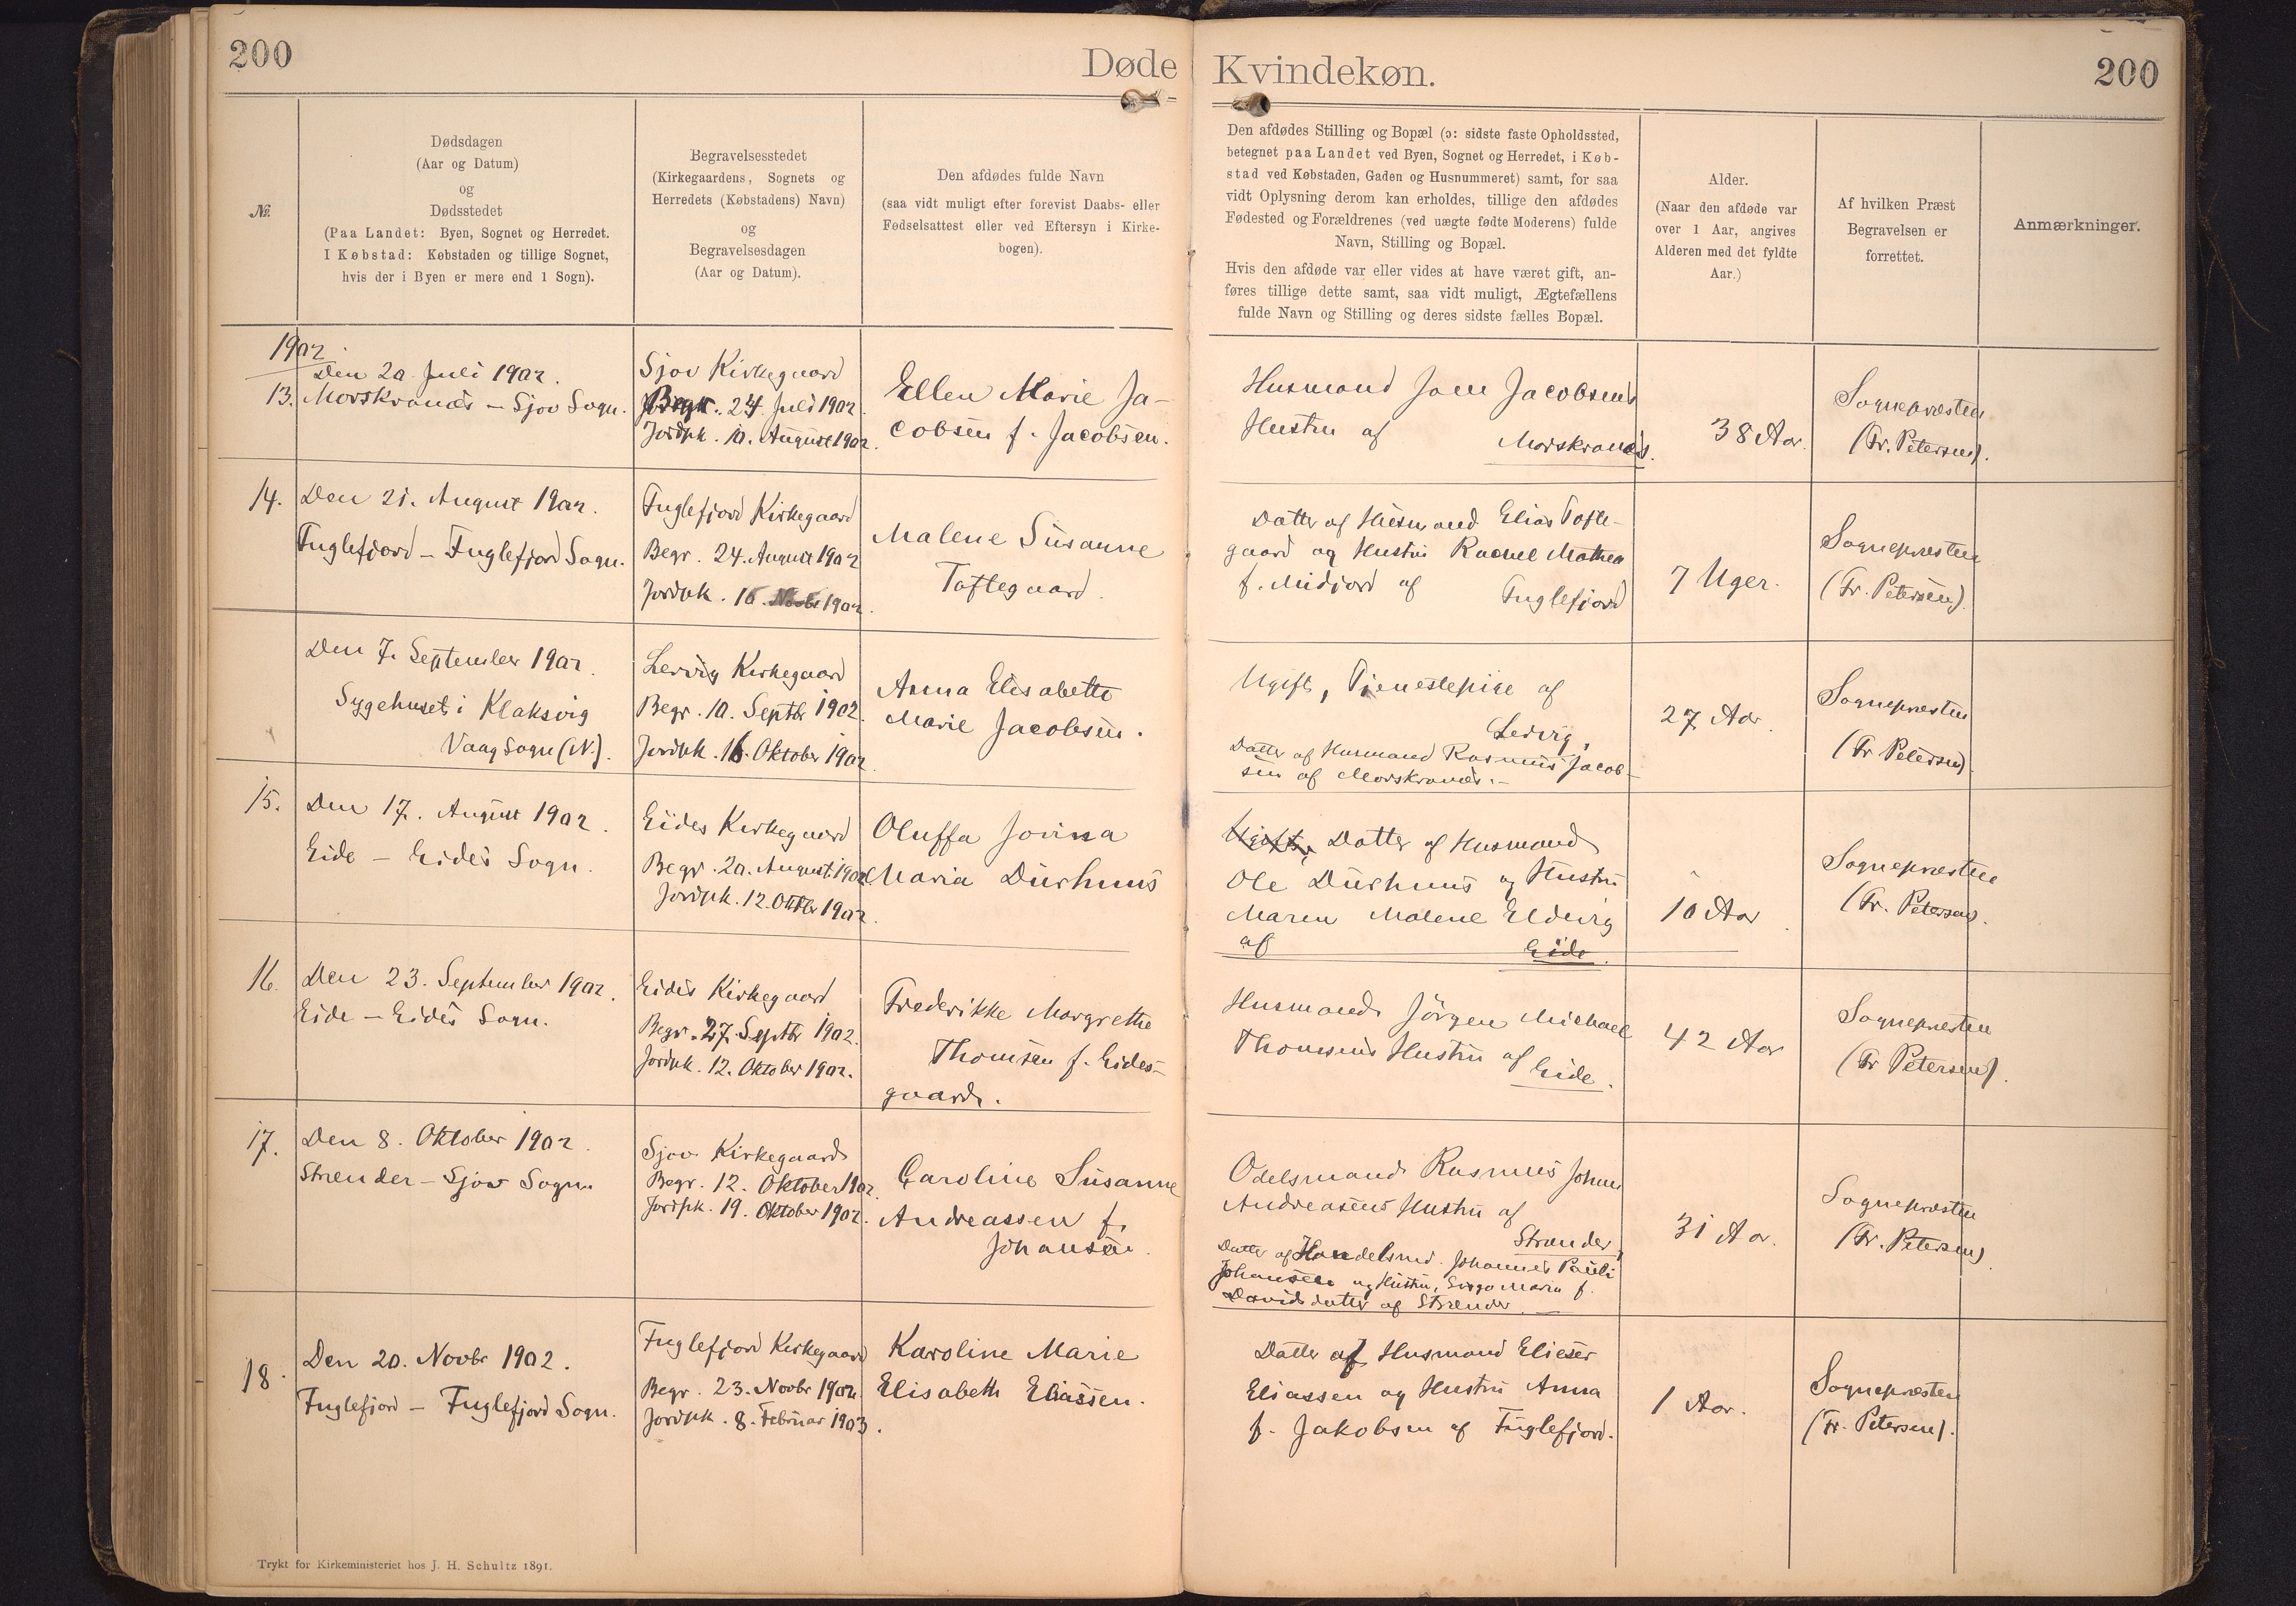 200
Døde
Kvindekøn.
200
№.
Dødsdagen
(Aar og Datum)
og
Dødsstedet
(Paa Landet: Byen, Sognet og Herredet.
I Købstad: Købstaden og tillige Sognet,
hvis der i Byen er mere end 1 Sogn).
Begravelsesstedet
(Kirkegaardens, Sognets og
Herredets (Købstadens) Navn)
og
Begravelsesdagen
(Aar og Datum).
Den afdødes fulde Navn
(saa vidt muligt efter forevist Daabs- eller
Fødselsattest eller ved Eftersyn i Kirke-
bogen).
Den afdødes Stilling og Bopæl (ɔ: sidste faste Opholdssted,
betegnet paa Landet ved Byen, Sognet og Herredet, i Køb-
stad ved Købstaden, Gaden og Husnummeret) samt, for saa
vidt Oplysning derom kan erholdes, tillige den afdødes
Fødested og Forældrenes (ved uægte fødte Moderens) fulde
Navn, Stilling og Bopæl.
Hvis den afdøde var eller vides at have været gift, an-
føres tillige dette samt, saa vidt muligt, Ægtefællens
fulde Navn og Stilling og deres sidste fælles Bopæl.
Alder.
(Naar den afdøde var
over 1 Aar, angives
Alderen med det fyldte
Aar.)
Af hvilken Præst
Begravelsen er
forrettet.
Anmærkninger.
1902
13.
Den 20 Juli 1902.
Morskranes – Sjov Sogn.
Sjov Kirkegaard
Begr. 24. Juli 1902
Jordpk. 10. August 1902.
Ellen Marie Ja-
cobsen f. Jacobsen.
Husmand Joen Jacobsens
Hustru af Morskranes.
38 Aar.
Sognepræsten
(Fr. Petersen).
14.
Den 21. August 1902.
Fuglefjord – Fuglefjord Sogn.
Fuglefjord Kirkegaard
Begr. 24. August 1902
Jordpk. 16. Novbr 1902.
Malene Susanne
Toftegaard.
Datter af Husmand Elias Tofte-
gaard og Hustru Rachel Mathea
f. Midjord af Fuglefjord
7 Uger.
Sognepræsten
(Fr. Petersen).
Den 7. September 1902.
Sygehuset i Klaksvig
Vaag Sogn (N.).
Lervig Kirkegaard
Begr. 10. Septbr 1902.
Jordpk. 16. Oktober 1902.
Anna Elisabeth
Marie Jacobsen.
Ugift, Tjenestepige af
Lervig,
Datter af Husmand Rasmus Jacob-
sen af Morskranes. –
27 Aar
Sognepræsten
(Fr Petersen)
15.
Den 17. August 1902.
Eide – Eides Sogn.
Eides Kirkegaard
Begr. 20. August 1902
Jordpk. 12. Oktbr 1902.
Oluffa Jovina
Maria Durhuus
Ugift, Datter af Husmand
Ole Durhuus og Hustru
Maren Malene Eldevig
af Eide.
10 Aar
Sognepræsten
(Fr. Petersen).
16.
Den 23. September 1902.
Eide – Eides Sogn.
Eides Kirkegaard
Begr. 27. Septbr 1902.
Jordpk. 12. Oktober 1902.
Frederikke Margrethe
Thomsen f. Eides-
gaard.
Husmand Jörgen Michael
Thomsens Hustru af
Eide.
42 Aar
Sognepræsten
(Fr Petersen).
17.
Den 8. Oktober 1902.
Strænder – Sjov Sogn
Sjov Kirkegaard
Begr. 12. Oktober 1902.
Jordpk. 19. Oktober 1902.
Caroline Susanne
Andreassen f.
Johansen.
Odelsmand Rasmus Johan
Andreasens Hustru af
Strænder,
Datter af Handelsmd. Johannes Pauli
Johansen og Hustru, Maria f.
Davidsdatter af Strænder. –
31 Aar.
Sognepræsten
(Fr. Petersen)
18.
Den 20. Novbr 1902.
Fuglefjord – Fuglefjord Sogn.
Fuglefjord Kirkegaard
Begr. 23. Novbr 1902.
Jordpk. 8. Februar 1903.
Karoline Marie
Elisabeth Eliassen.
Datter af Husmand Elieser
Eliassen og Hustru Anna
f. Jakobsen af Fuglefjord.
1 Aar.
Sognepræsten
(Fr. Petersen).
Trykt for Kirkeministeriet hos J. H. Schultz 1891.